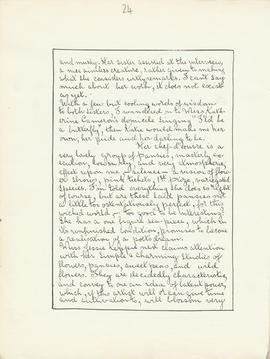 24
and mushy. Her sister assisted at the interview,
a nice timless creature, rather given to making
what she considers witty remarks. I can't say
much about her work, it does not exist
as yet.
With a few but cooling words of wisdom
to both sisters, I wandered on to Miss Kath-
erine Cameron's domicile singing "I'd be
a butterfly", then Kate would make me her
own, her pride and her darling to be.
Her chef-d'œuvre is a
very lovely group of pansies, masterly ex-
ecution, low works, and very atmospheric
effect upon me in silence — a vision of flow-
er shows, pink tickets, 1st prize, variegated
species. I'm told everything she does is right
of course, but are these said pansies not
a little too ostentatiously perfect, for this
wicked world — too good to be interesting?
She has a one pound sea-piece, which in
its unfinished condition, promises to become
a realisation of a poet's dream.
Miss Jessie Keppie next claims attention
with her simple & charming studies of
flowers, pansies, sweet peas, and wild
flowers. They are decidedly characteristic,
and convey to one an idea of latent power,
which, if this artist will or can give time
and cultivation to, will blossom very